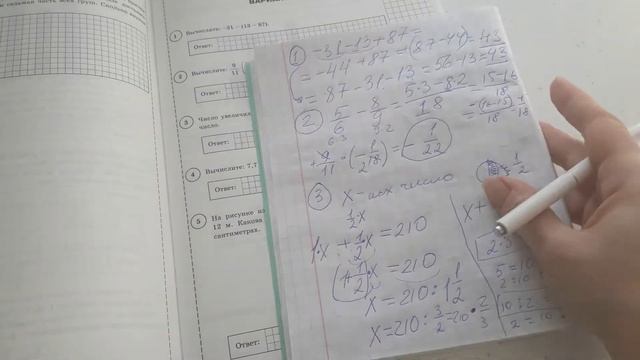 седьмая часть всех груш. Сколько
ВАРИАН
1 Вычислите: -31 - (13 - 87).
Ответ:
2 Вычислите:
Ответ:
3 Число увеличи
число.
Ответ:
4 Вычислите: 7,7
Ответ:
5 На рисунке из
12 м. Какова
сантиметрах.
Ответ:
① -31-13+87=
= -44+87=(87-44)=43
= 87-31-13=56-13=43
② 5/6 - 8/9 = 5·3-8·2/18 = 15-16/18
= -(16-15)/18 = -1/18
+9/11·(-1/18)= -1/22
③ x - исх число
1/2x
1·x + 1/2x = 210
(1+1/2)·x = 210
x = 210 : 1 1/2
x = 210 : 3/2 = 210 · 2/3
1/2
x+
5 = 10
2 = 10
10:2 =
2 = 10